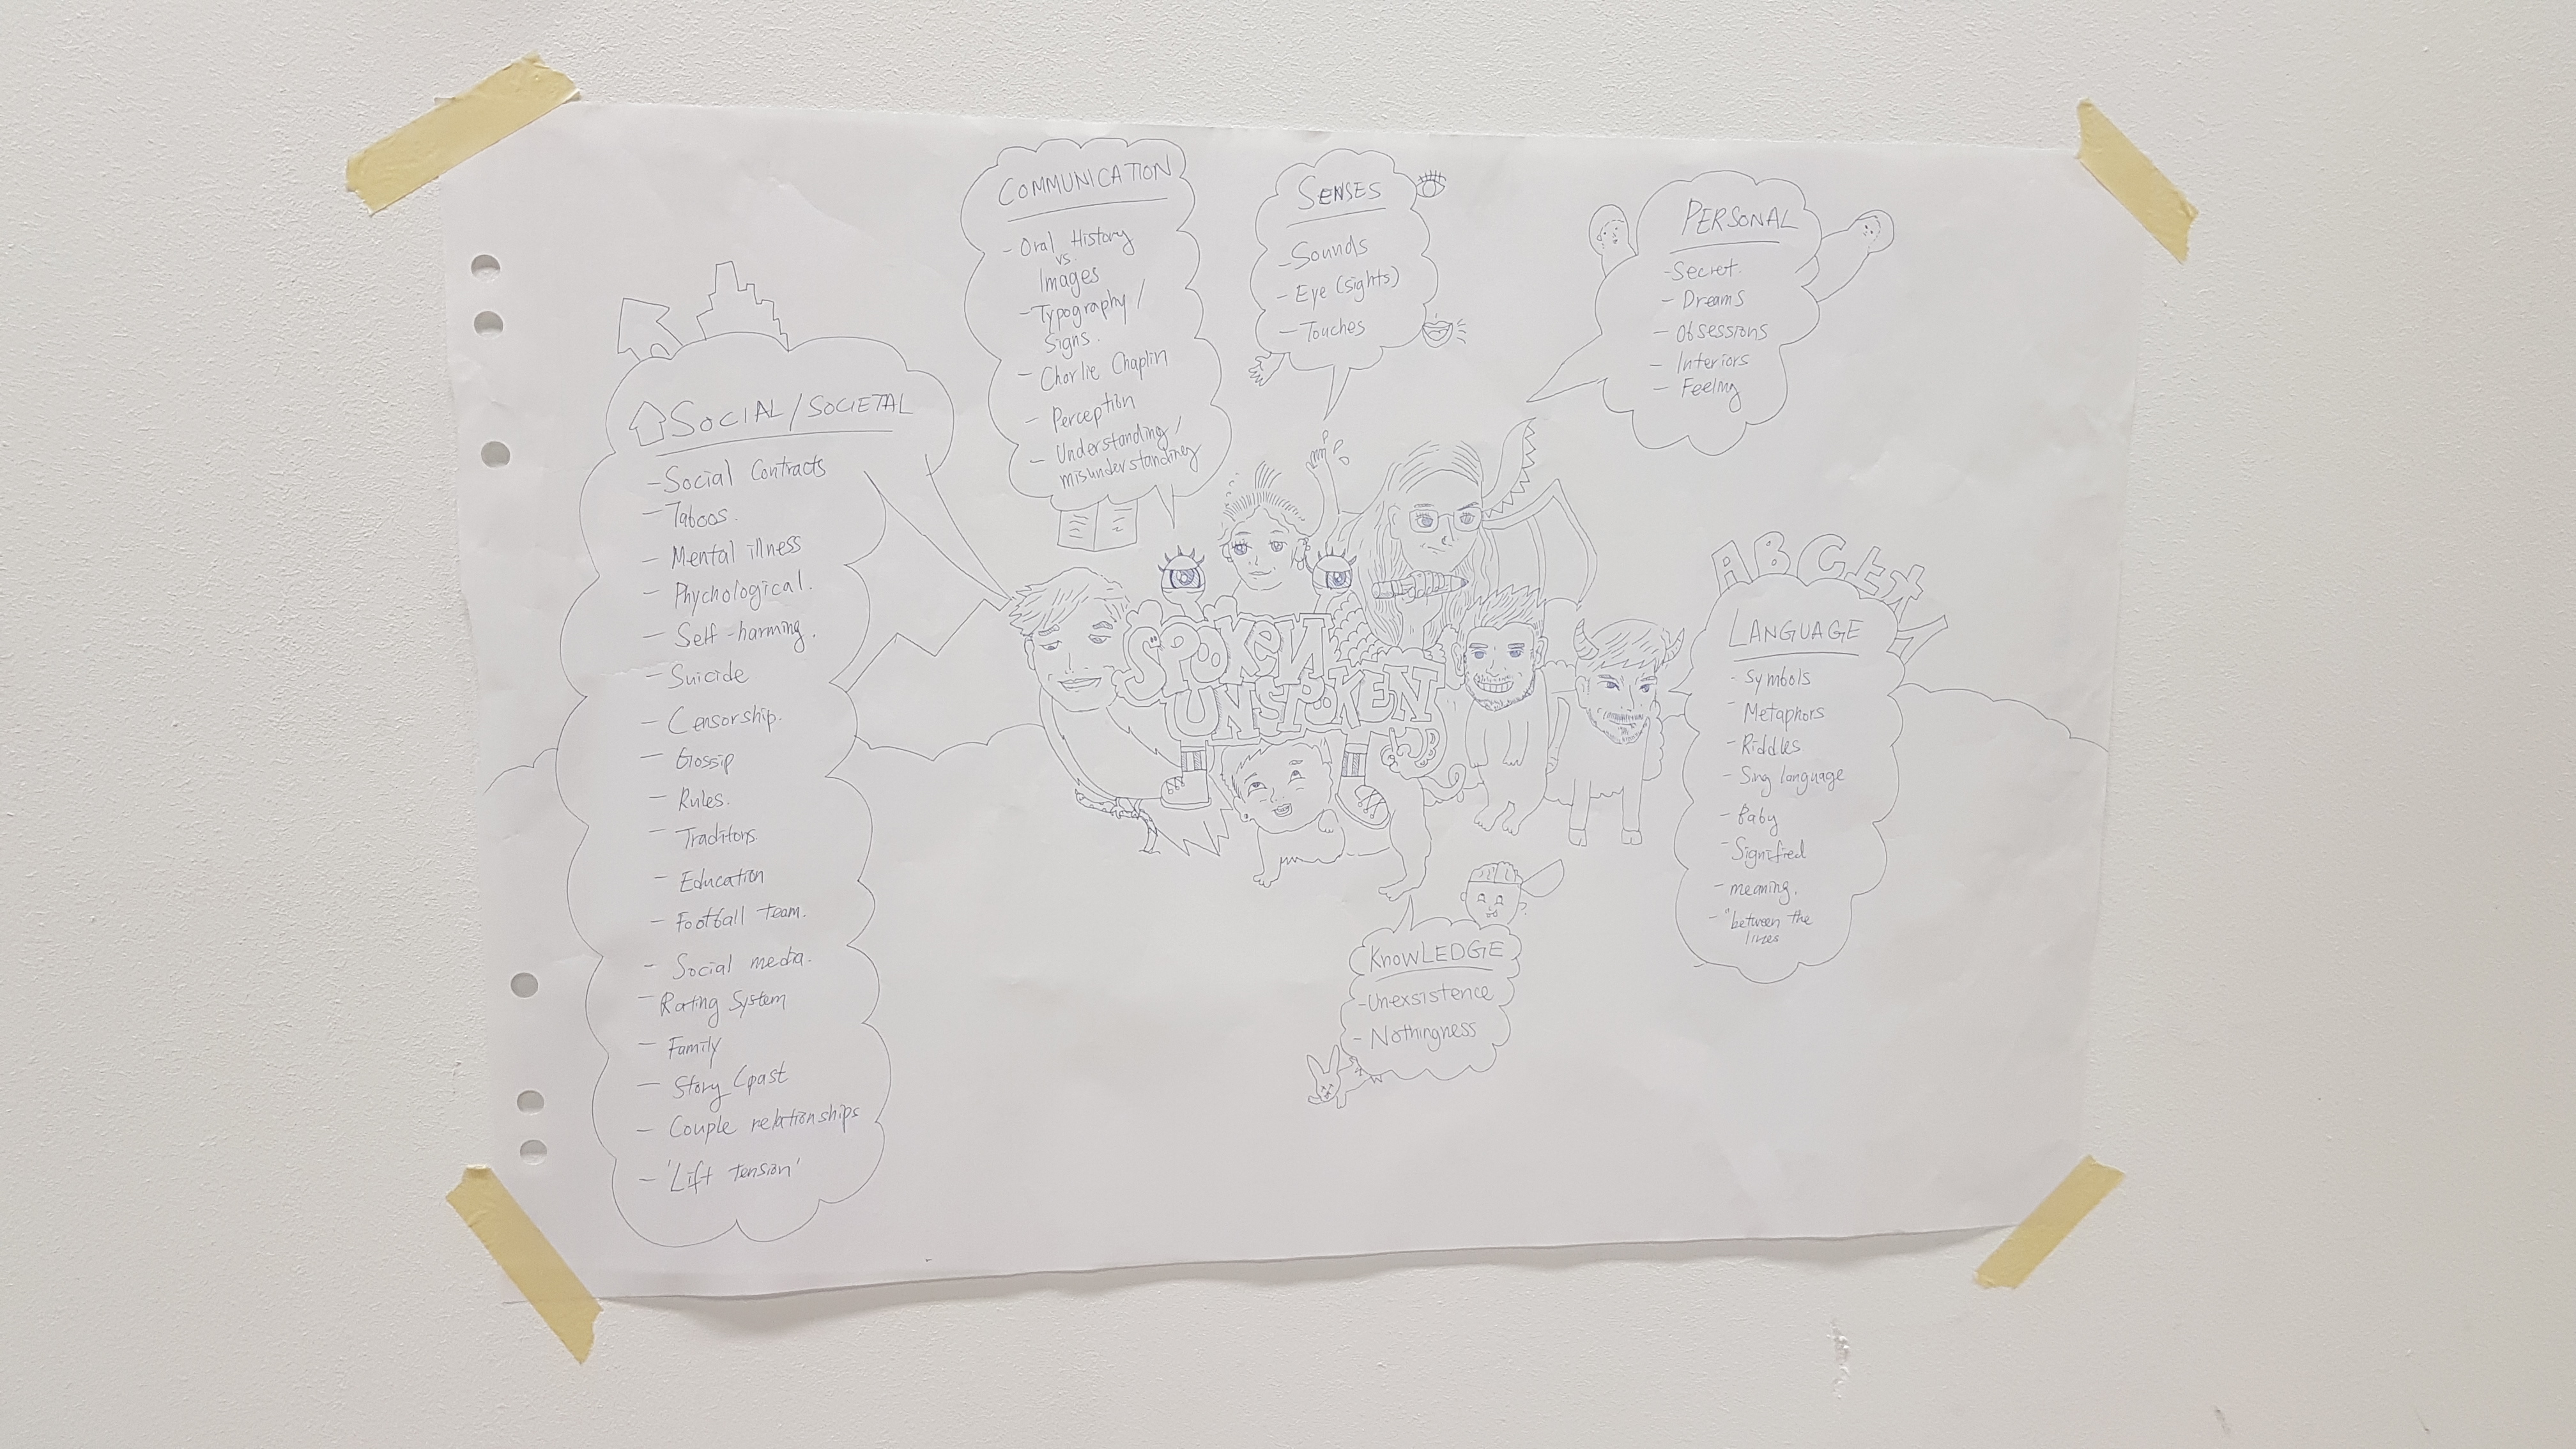 SOCIAL/SOCIETAL
- Social Contracts
- Taboos.
- Mental illness
- Phychological.
- Self-harming.
- Suicide
- Censorship.
- Gossip
- Rules.
- Traditons.
- Education
- Football team.
- Social media.
- Rating System
- Family
- Story (past
- Couple relationships
- 'Lift tension'
COMMUNICATION
- Oral History
vs.
Images
- Typography /
Signs.
- Charlie Chaplin
- Perception
- Understanding /
misunderstanding
SENSES
- Sounds
- Eye (sights)
- Touches
PERSONAL
- Secret.
- Dreams
- Obsessions
- Interiors
- Feeling
SPOKEN
UNSPOKEN
ABC
LANGUAGE
- Symbols
- Metaphors
- Riddles
- Sing language
- Baby
- Signified
- meaning.
- "between the
lines
KNOWLEDGE
- Unexsistence
- Nothingness